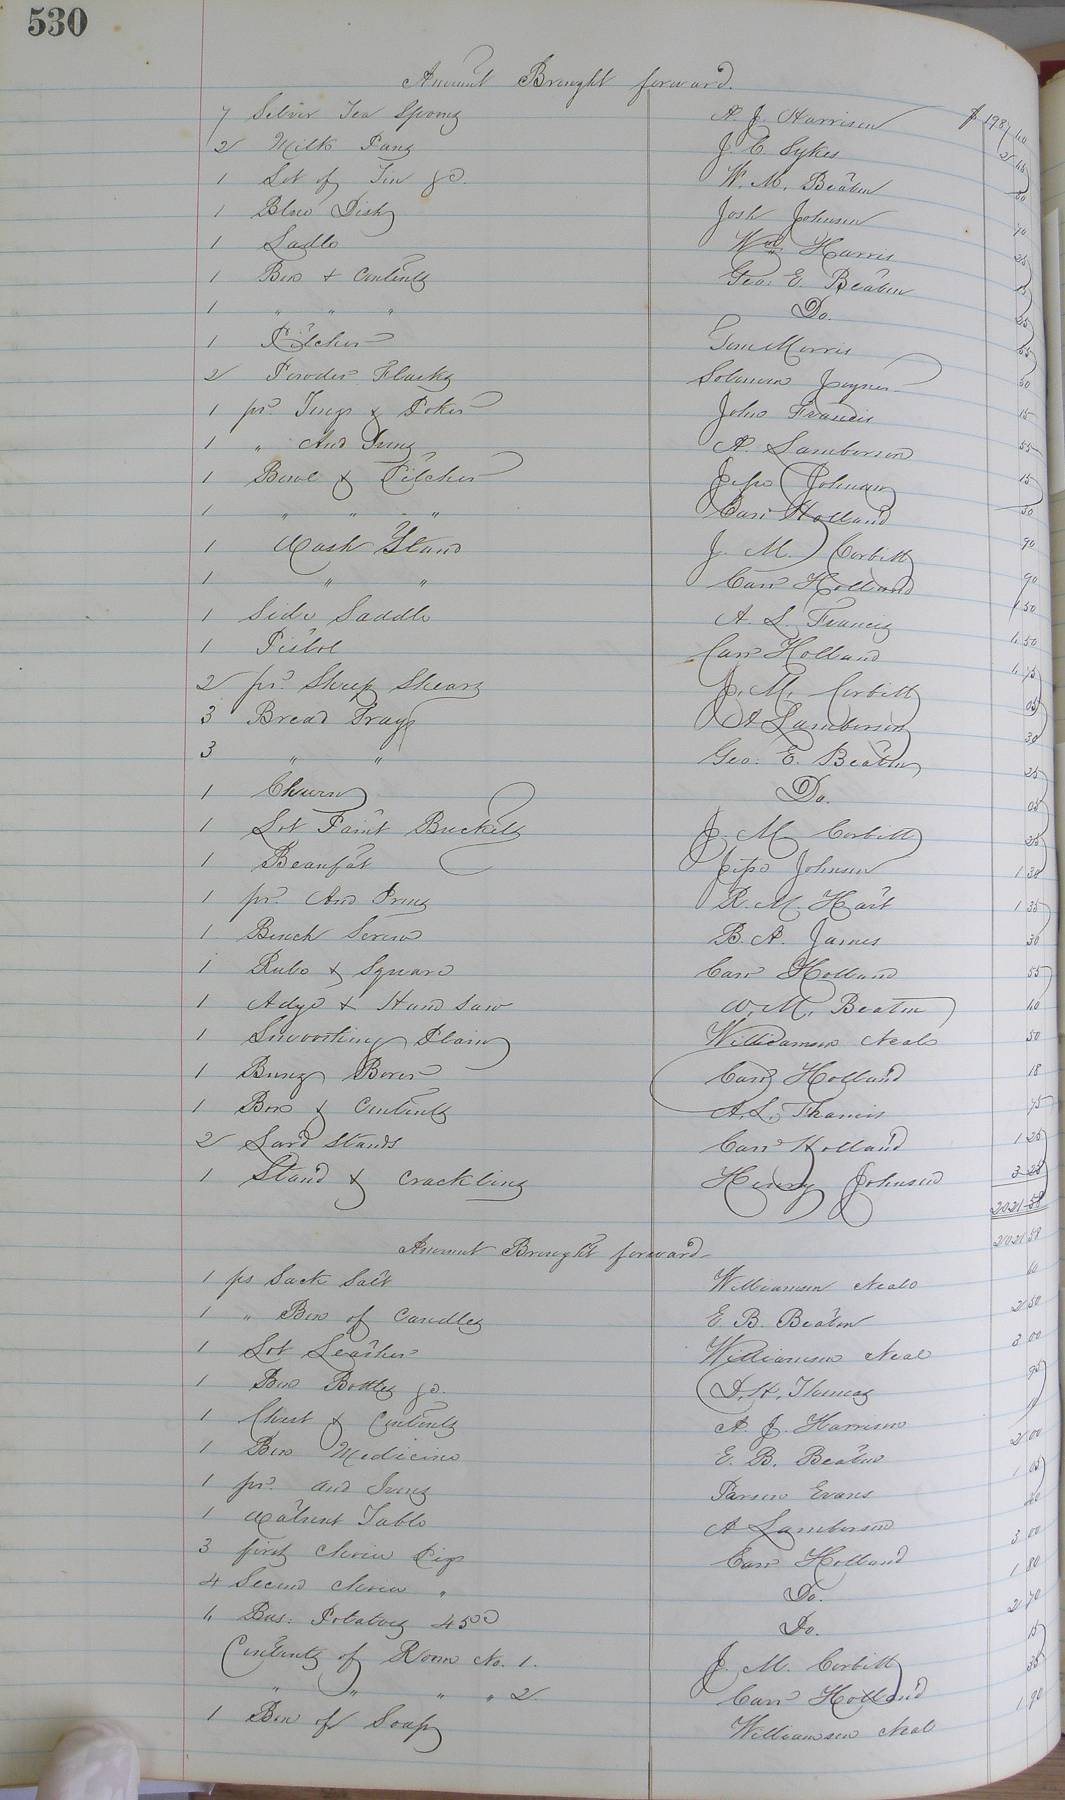 530
Amount Brought forward.
7 Silver Tea Spoons A. J. Harrison $ 198
2 Milk Pans J. C. Sykes
1 Lot of Tin &c. W. M. Beaton 80
1 Blue Dish Josh Johnson 10
1 Ladle Wm Harris 25
1 Box & Contents Geo. E. Beaton 15
1 " " " Do. 25
1 Pitcher Tom Morris 65
2 Powder Flasks Solomon Joyner 50
1 pr. Tongs & Poker John Francis 15
1 " And Irons A. Lamberson 55
1 Bowl & Pitcher Johnson 15
1 " " " Carr Holland 50
1 Wash Stand J. M. Corbitt 90
1 " " Carr Holland 90
1 Side Saddle A. L. Francis 50
1 Pistol Carr Holland 50
2 pr. Sheep Shears J. M. Corbitt 75
3 Bread Trays A Lamberson 05
3 " " Geo. E. Beaton 30
1 Churn Do. 25
1 Lot Paint Buckets J. M. Corbitt 05
1 Beaufat Johnson 25
1 pr. And Irons R. M. Hart 1 30
1 Bench Screw B. A. James 1 35
1 Rule & Square Carr Holland 30
1 Adge & Hand Saw W. M. Beaton 55
1 Smoothing Plain Williamson Neal 60
1 Bung Borer Carr Holland 50
1 Box & Contents A. L. Francis 18
2 Lard Stands Carr Holland 75
1 Stand & Crackling Henry Johnson 1 25
3 25
2021 59
2021 59
Amount Brought forward
1 ps Sack Salt Williamson Neal 10
1 " Box of Candles E. B. Beaton 2 50
1 Lot Leather Williamson Neal 3 00
1 Box Bottles &c. D. H. Thomas 95
1 Chest & Contents A. J. Harrison
1 Box Medicine E. B. Beaton 2 00
1 pr. And Irons Parson Evans 1 05
1 Walnut Table A Lamberson
3 first choice Pigs Carr Holland 3 00
4 Second choice " Do. 1 80
6 Bus: Potatoes 45 Do. 2 70
Contents of Room No. 1. J. M. Corbitt 15
" " " " 2. Carr Holland 35
1 Box of Soap Williamson Neal 1 90